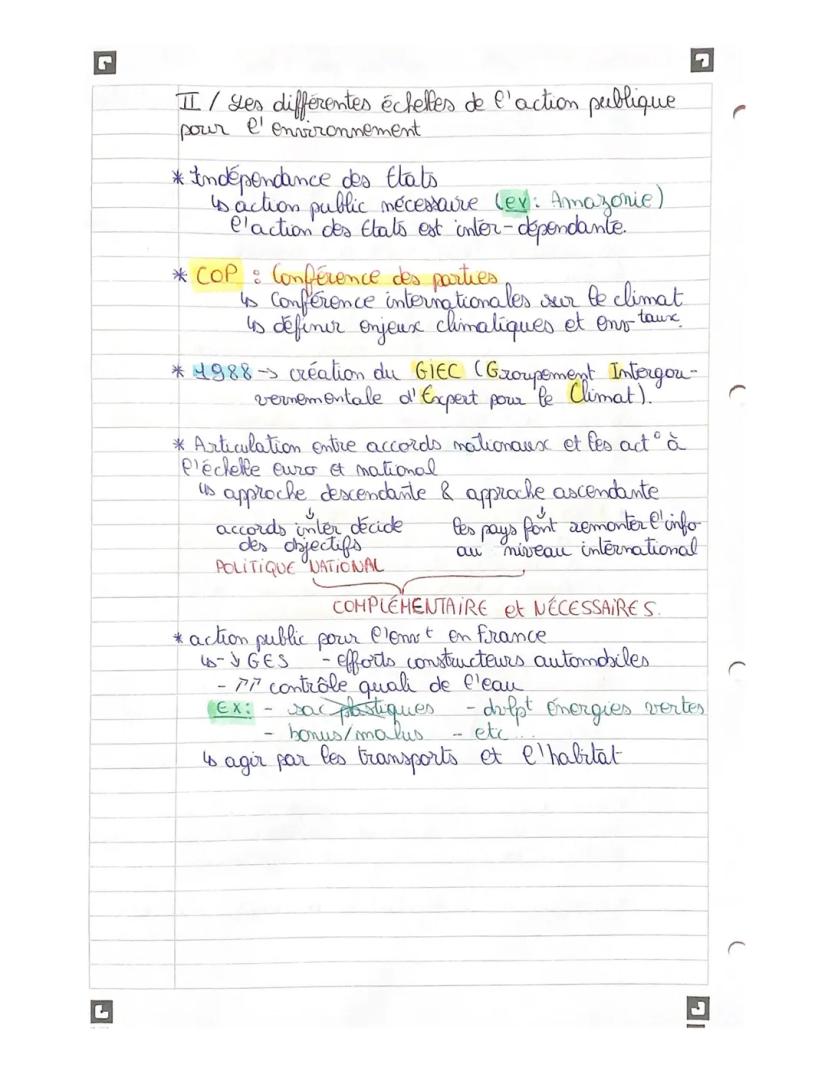 II / Les différentes échelles de l'action publique
pour l'environnement
* Indépendance des Etats
↳ action public nécessaire (ex : Amazonie)
l'action des Etats est inter-dépendante.
* COP : Conférence des parties
↳ Conférence internationales sur le climat
↳ définir enjeux climatiques et env taux.
* 1988 -> création du GIEC (Groupement Intergou-
vernementale d'Expert pour le Climat).
* Articulation entre accords nationaux et les act° à
l'échelle euro et national
↳ approche descendante & approche ascendante
↓ ↓
accords inter décide les pays font remonter l'info
des objectifs au niveau international
POLITIQUE NATIONAL
COMPLÉMENTAIRE et NÉCESSAIRES.
* action public pour l'envt en France
↳ - ↓ GES - efforts constructeurs automobiles
- ↗↗ contrôle quali de l'eau
EX : - sac plastiques - dvlpt énergies vertes
- bonus/malus - etc...
↳ agir par les transports et l'habitat